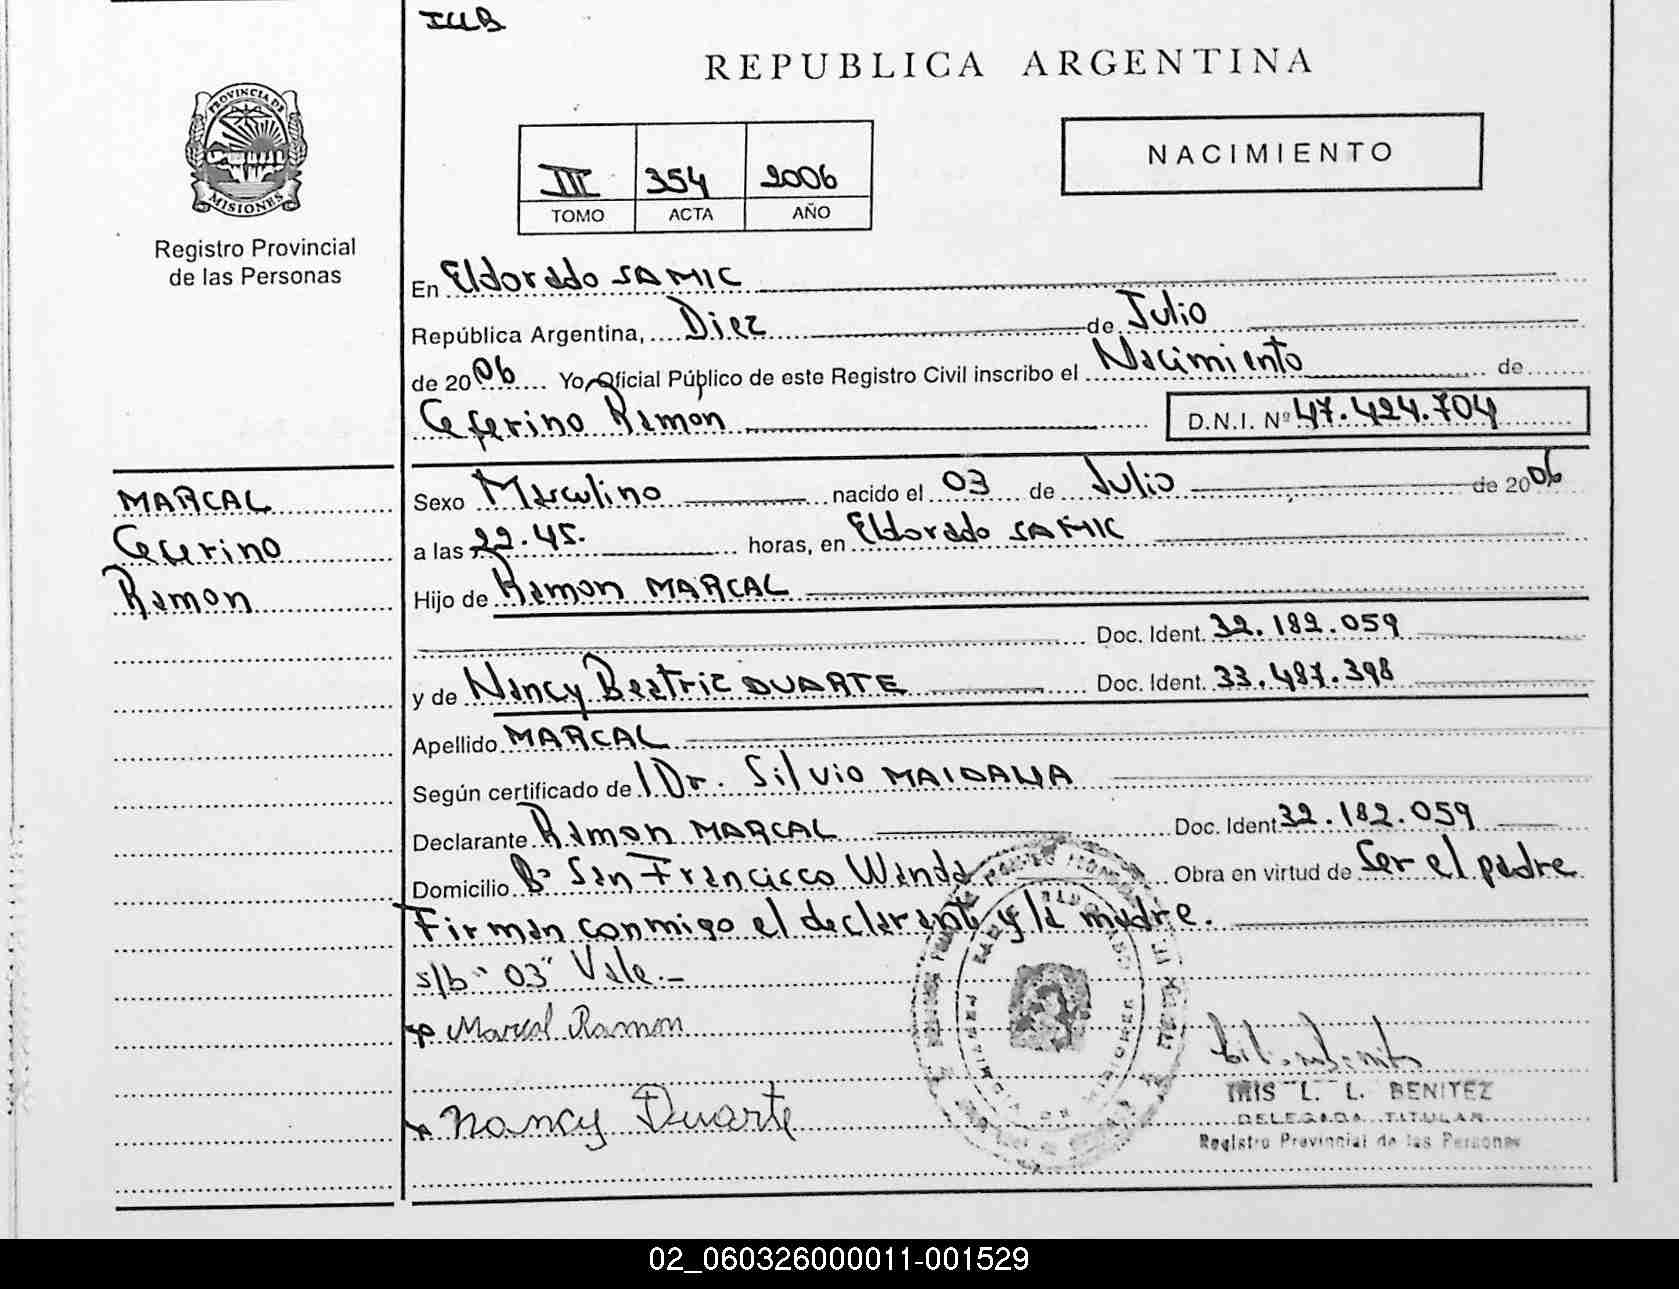 IUB
REPUBLICA ARGENTINA
PROVINCIA DE
MISIONES
Registro Provincial
de las Personas
III 354 2006
TOMO ACTA AÑO
NACIMIENTO
En Eldorado SAMIC
República Argentina, Diez de Julio
de 2006 Yo, Oficial Público de este Registro Civil inscribo el Nacimiento de
Ceferino Ramon D.N.I. Nº 47.424.704
MARCAL
Ceferino
Ramon
Sexo Masculino nacido el 03 de Julio de 2006
a las 22.45. horas, en Eldorado SAMIC
Hijo de Ramon MARCAL
Doc. Ident. 32.182.059
y de Nancy Beatriz DUARTE Doc. Ident. 33.487.398
Apellido MARCAL
Según certificado de l Dr. Silvio MAIDANA
Declarante Ramon MARCAL Doc. Ident 32.182.059
Domicilio Bº San Francisco Wanda Obra en virtud de Ser el padre
Firman conmigo el declarante y la madre.
s/b "03" Vale.-
Marcal Ramon
Nancy Duarte
IRIS L. L. BENITEZ
DELEGADA TITULAR
Registro Provincial de las Personas
02_060326000011-001529